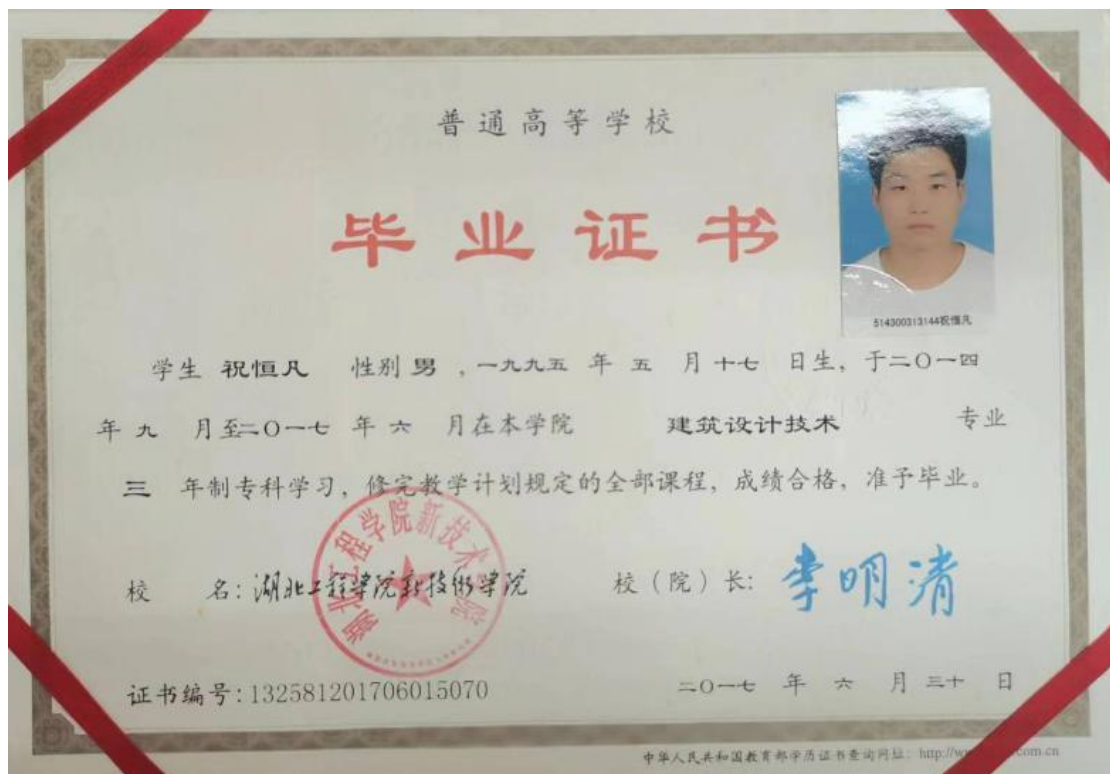 普通高等学校
毕业证书
514300313144祝恒凡
学生 祝恒凡 性别 男 ，一九九五 年 五 月 十七 日生，于二〇一四
年 九 月至二〇一七 年 六 月在本学院 建筑设计技术 专业
三 年制专科学习，修完教学计划规定的全部课程，成绩合格，准予毕业。
湖北工程学院新技术学院
校 名：湖北工程学院新技術学院 校（院）长：李明清
证书编号：132581201706015070 二〇一七 年 六 月 三十 日
中华人民共和国教育部学历证书查询网址：http://w com.cn